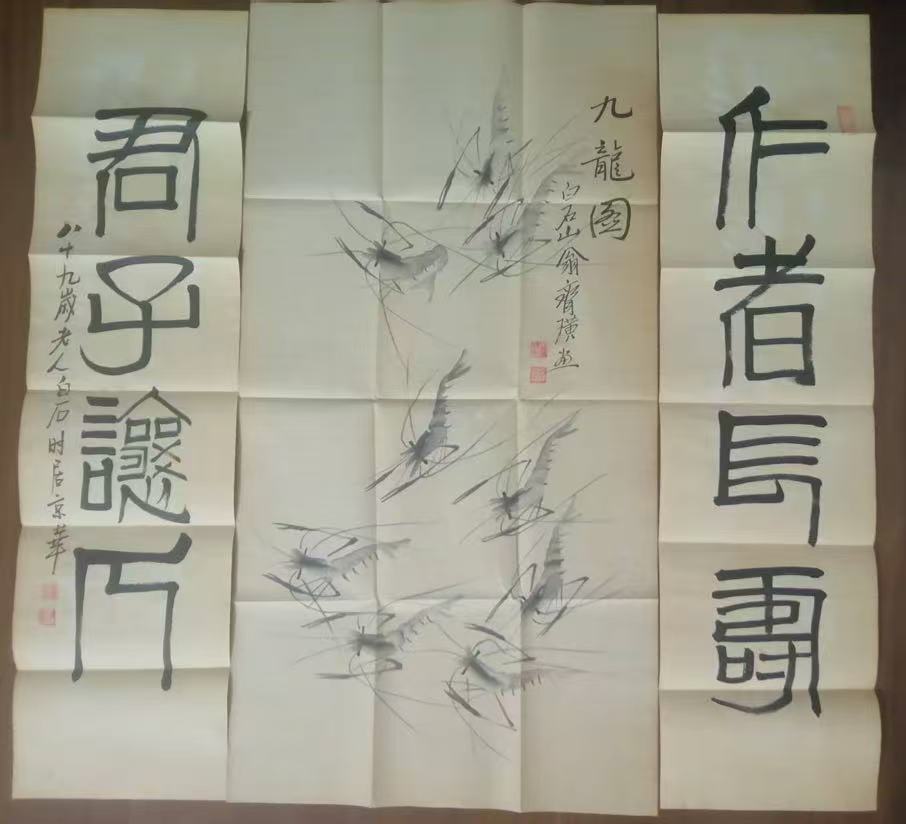 仁者長壽
九龍圖
白石山翁齊璜畫
君子讓人
八十九歲老人白石时居京華